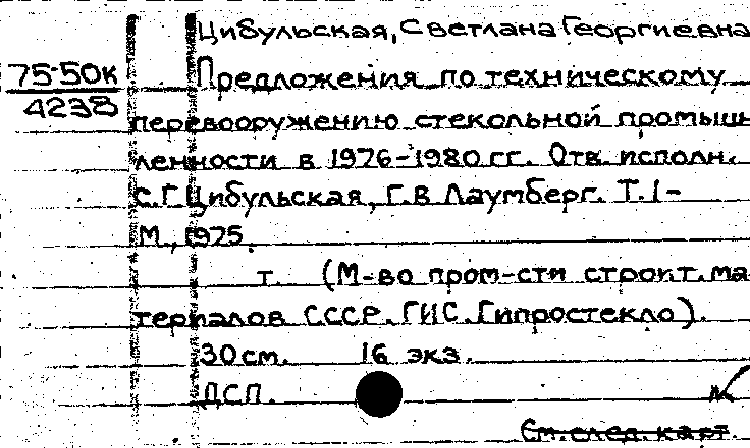 Цибульская, Светлана Георгиевна
75-50к
4238
Предложения по техническому
перевооружению стекольной промыш-
ленности в 1976-1980 гг. Отв. исполн.
С.Г Цибульская, Г.В Лаумберг. Т.1-
М., 1975.
т. (М-во пром-сти строит. ма-
териалов СССР. ГИС. Гипростекло).
30 см. 16 экз.
ДСП.
См. след. карт.